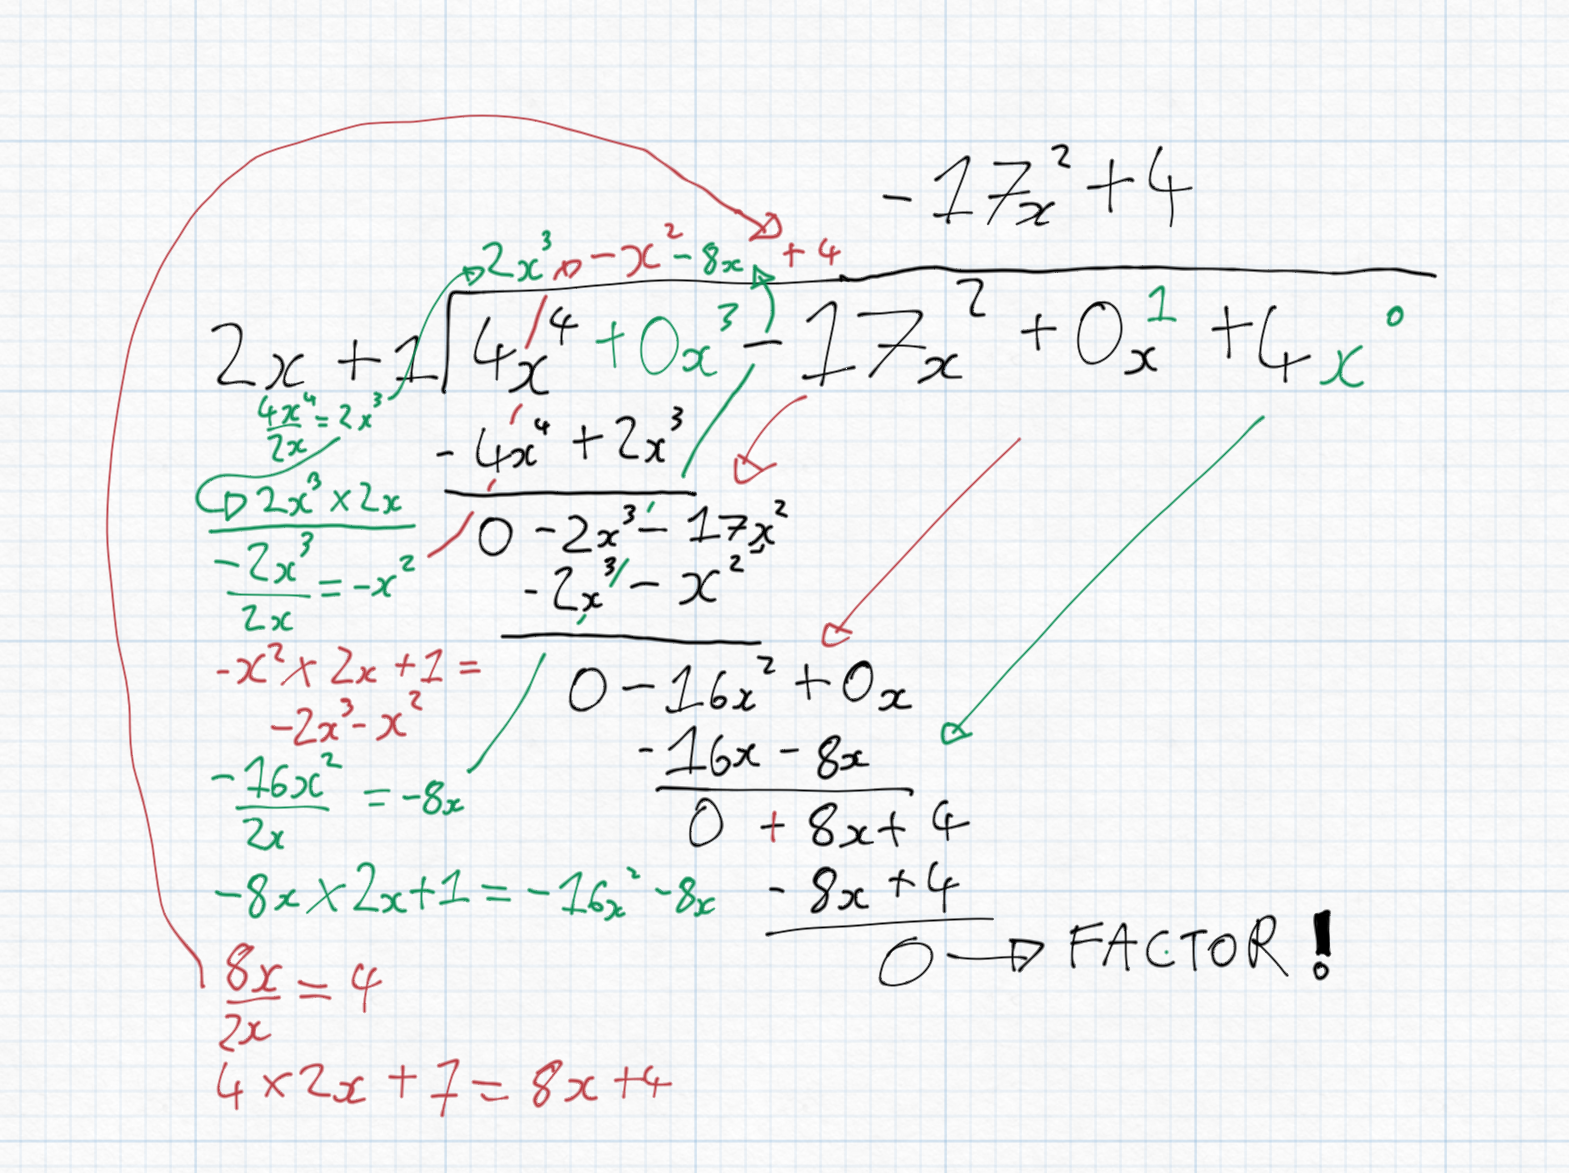 -17x² + 4
2x³ - x² - 8x + 4
2x + 1 4x⁴ + 0x³ - 17x² + 0x¹ + 4x⁰
4x⁴/2x = 2x³
- 4x⁴ + 2x³
2x³ × 2x
0 - 2x³ - 17x²
-2x³/2x = -x²
-2x³ - x²
-x² × 2x + 1 =
0 - 16x² + 0x
-2x³ - x²
-16x - 8x
-16x²/2x = -8x
0 + 8x + 4
-8x × 2x + 1 = -16x² - 8x
- 8x + 4
0 → FACTOR!
8x/2x = 4
4 × 2x + 7 = 8x + 4